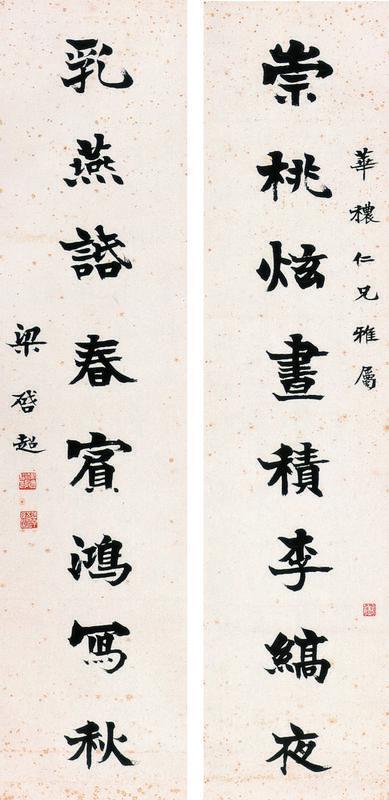 華穠仁兄雅屬
崇桃炫晝積李縞夜
乳燕詣春賓鴻寫秋
梁啓超